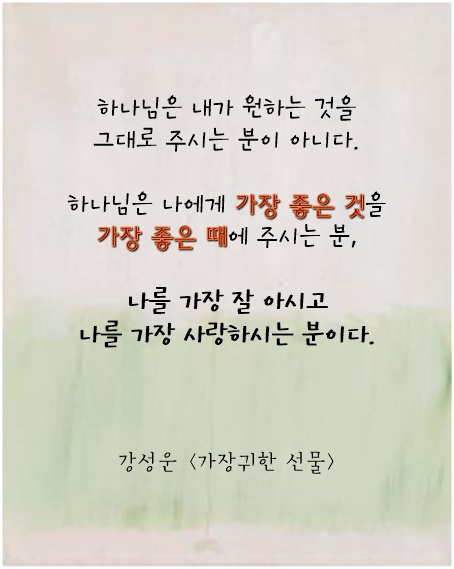 하나님은 내가 원하는 것을
그대로 주시는 분이 아니다.
하나님은 나에게 가장 좋은 것을
가장 좋은 때에 주시는 분,
나를 가장 잘 아시고
나를 가장 사랑하시는 분이다.
강성운 <가장귀한 선물>